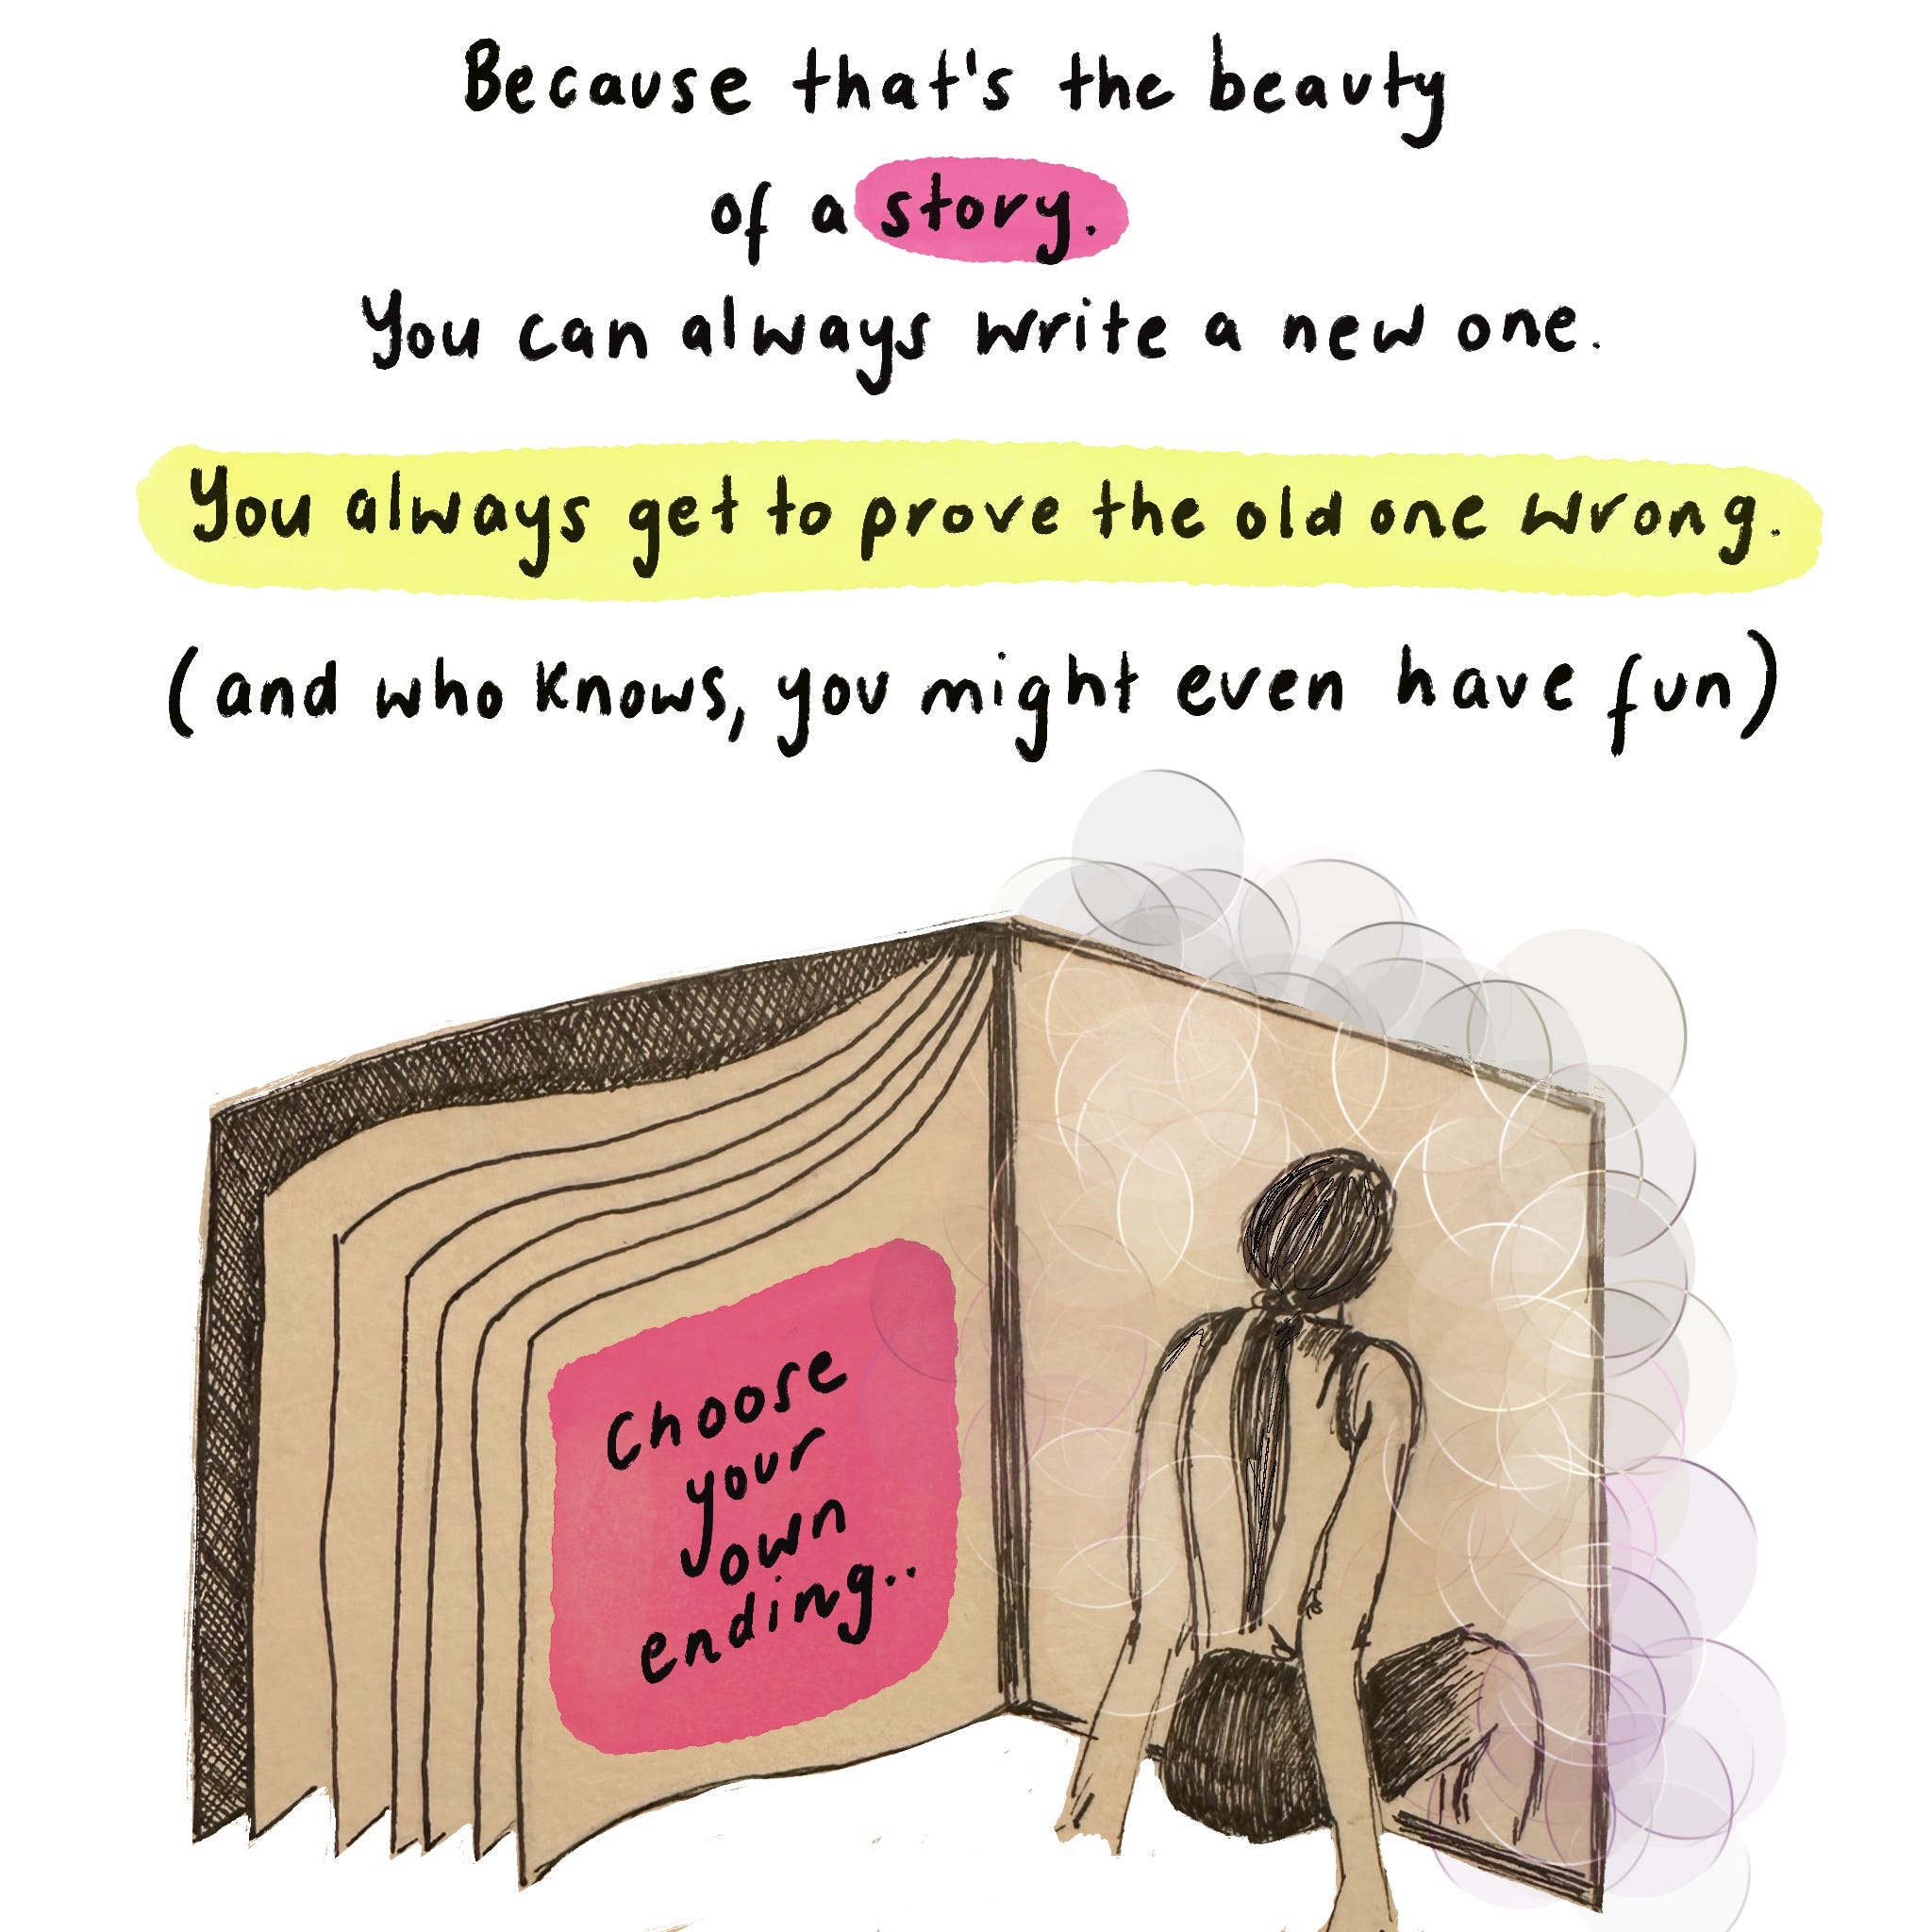 Because that's the beauty
of a story.
You can always write a new one.
You always get to prove the old one wrong.
(and who knows, you might even have fun)
Choose
your
own
ending..